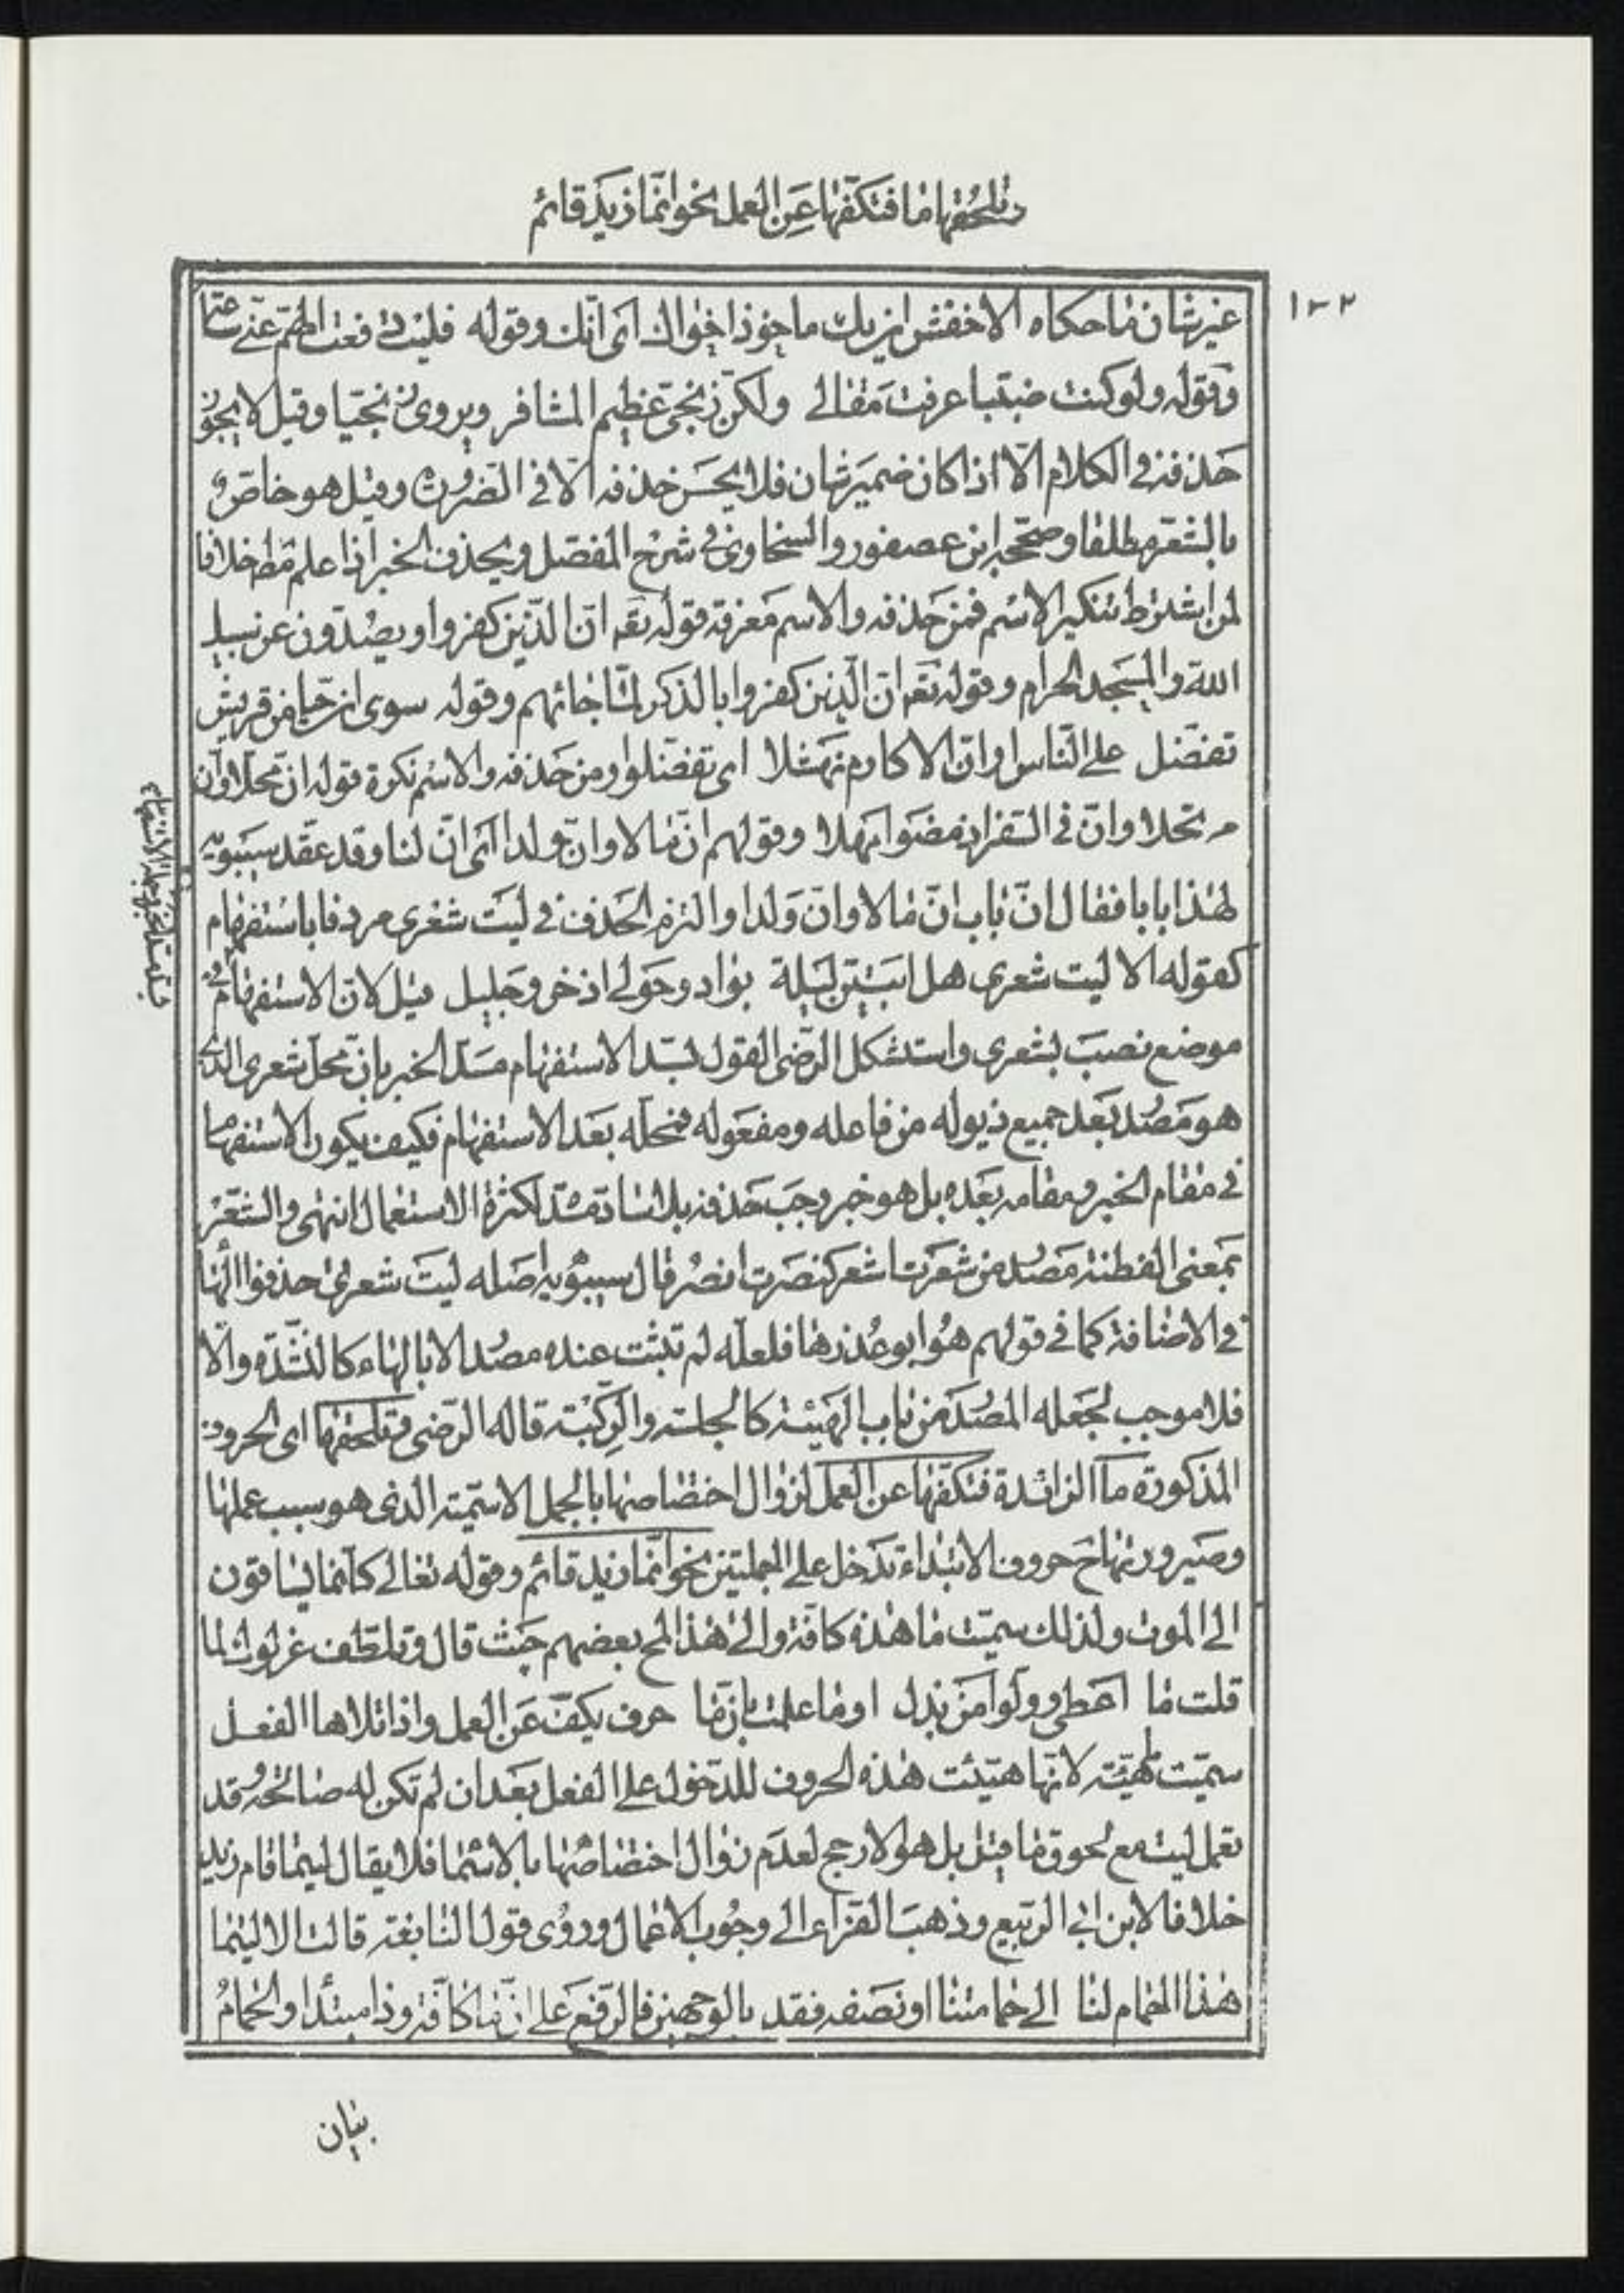 وتلحقها ما فتكفّها عن العمل نحو انّما زيد قائم
١٠٢
غير شان ما حكاه الاخفش ان بك ماخوذ اخواك اى انّك وقوله فليت دفعت الهمّ عنّى ساعة
وقوله ولو كنت ضبّيّا عرفت مقالى ولكنّ زنجىّ عظيم المشافر ويروى زنجيّا وقيل لا يجوز
حذفه فى الكلام الّا اذا كان ضمير شان فلا يحسن حذفه الّا فى الضرورة وقيل هو خاصّ
بالشعر مطلقا وصحّحه ابن عصفور والسخاوى فى شرح المفصّل ويحذف الخبر اذا علم مط خلافا
لمن اشترط تنكير الاسم فمن حذفه والاسم معرفة قوله تعم انّ الّذين كفروا ويصدّون عن سبيل
الله والمسجد الحرام وقوله تعم انّ الّذين كفروا بالذكر لمّا جائهم وقوله سوى انّ حيّا من قريش
تفضّل على النّاس او انّ الاكارم نهشلا اى تفضّلوا ومن حذفه والاسم نكرة قوله انّ محلّا وان
مرتحلا وانّ فى السّفر اذ مضوا مهلا وقولهم انّ مالا وانّ ولدا اى انّ لنا وقد عقد سيبويه
لهذا بابا فقال انّ باب انّ مالا وانّ ولدا والتزم الحذف فى ليت شعرى مردفا باستفهام
كقوله الا ليت شعرى هل ابيتنّ ليلة بواد وحولى اذخر وجليل قيل لانّ الاستفهام فى
موضع نصب بشعرى واستشكل الرّضى القول بسدّ الاستفهام مسدّ الخبر بانّ محلّ شعرى الذى
هو مصدر بعد جميع ذيوله من فاعله ومفعوله فمحلّه بعد الاستفهام فكيف يكون الاستفهام
فى مقام الخبر ومقامه بعده بل هو خبر وجب حذفه بلا سادّ مسدّه لكثرة الاستعمال انتهى والشّعر
بمعنى الفطنة مصدر من شعرت اشعر كنصرت انصر قال سيبويه اصله ليت شعرتى حذفوا الهاء
فى الاضافة كما فى قولهم هو ابو عذرها فلعلّه لم تثبت عنده مصدرا الا بالهاء كالنشدة والّا
فلا موجب لجعله المصدر من باب الهيئة كالجلسة والرّكبة قاله الرّضى وتلحقها اى الحروف
المذكورة ما الزائدة فتكفّها عن العمل لزوال اختصاصها بالجمل الاسميّة الذى هو سبب عملها
وصيرورتها ح حروف الابتداء تدخل على الجملتين نحو انّما زيد قائم وقوله تعالى كانّما يساقون
الى الموت ولذلك سمّيت ما هذه كافّة والى هذا لمح بعضهم حيث قال وتلطّف غزلوا لما
قلت ما اعطى وولّوا من بذل او ما علمت بانّ ما حرف يكفّ عن العمل واذا تلاها الفعل
سمّيت مهيّئة لانّها هيّئت هذه الحروف للدّخول على الفعل بعد ان لم تكن له صالحة وقد
تعمل ليت مع لحوق ما قيل بل هو الارجح لعدم زوال اختصاصها بالاسماء فلا يقال ليتما قام زيد
خلافا لابن ابى الرّبيع وذهب الفرّاء الى وجوب الاعمال وروى قول النابغة قالت الا ليتما
هذا الحمام لنا الى حمامتنا او نصفه فقد بالوجهين فالرّفع على انّ ما كافّة وذا مبتدا والحمام
بيان